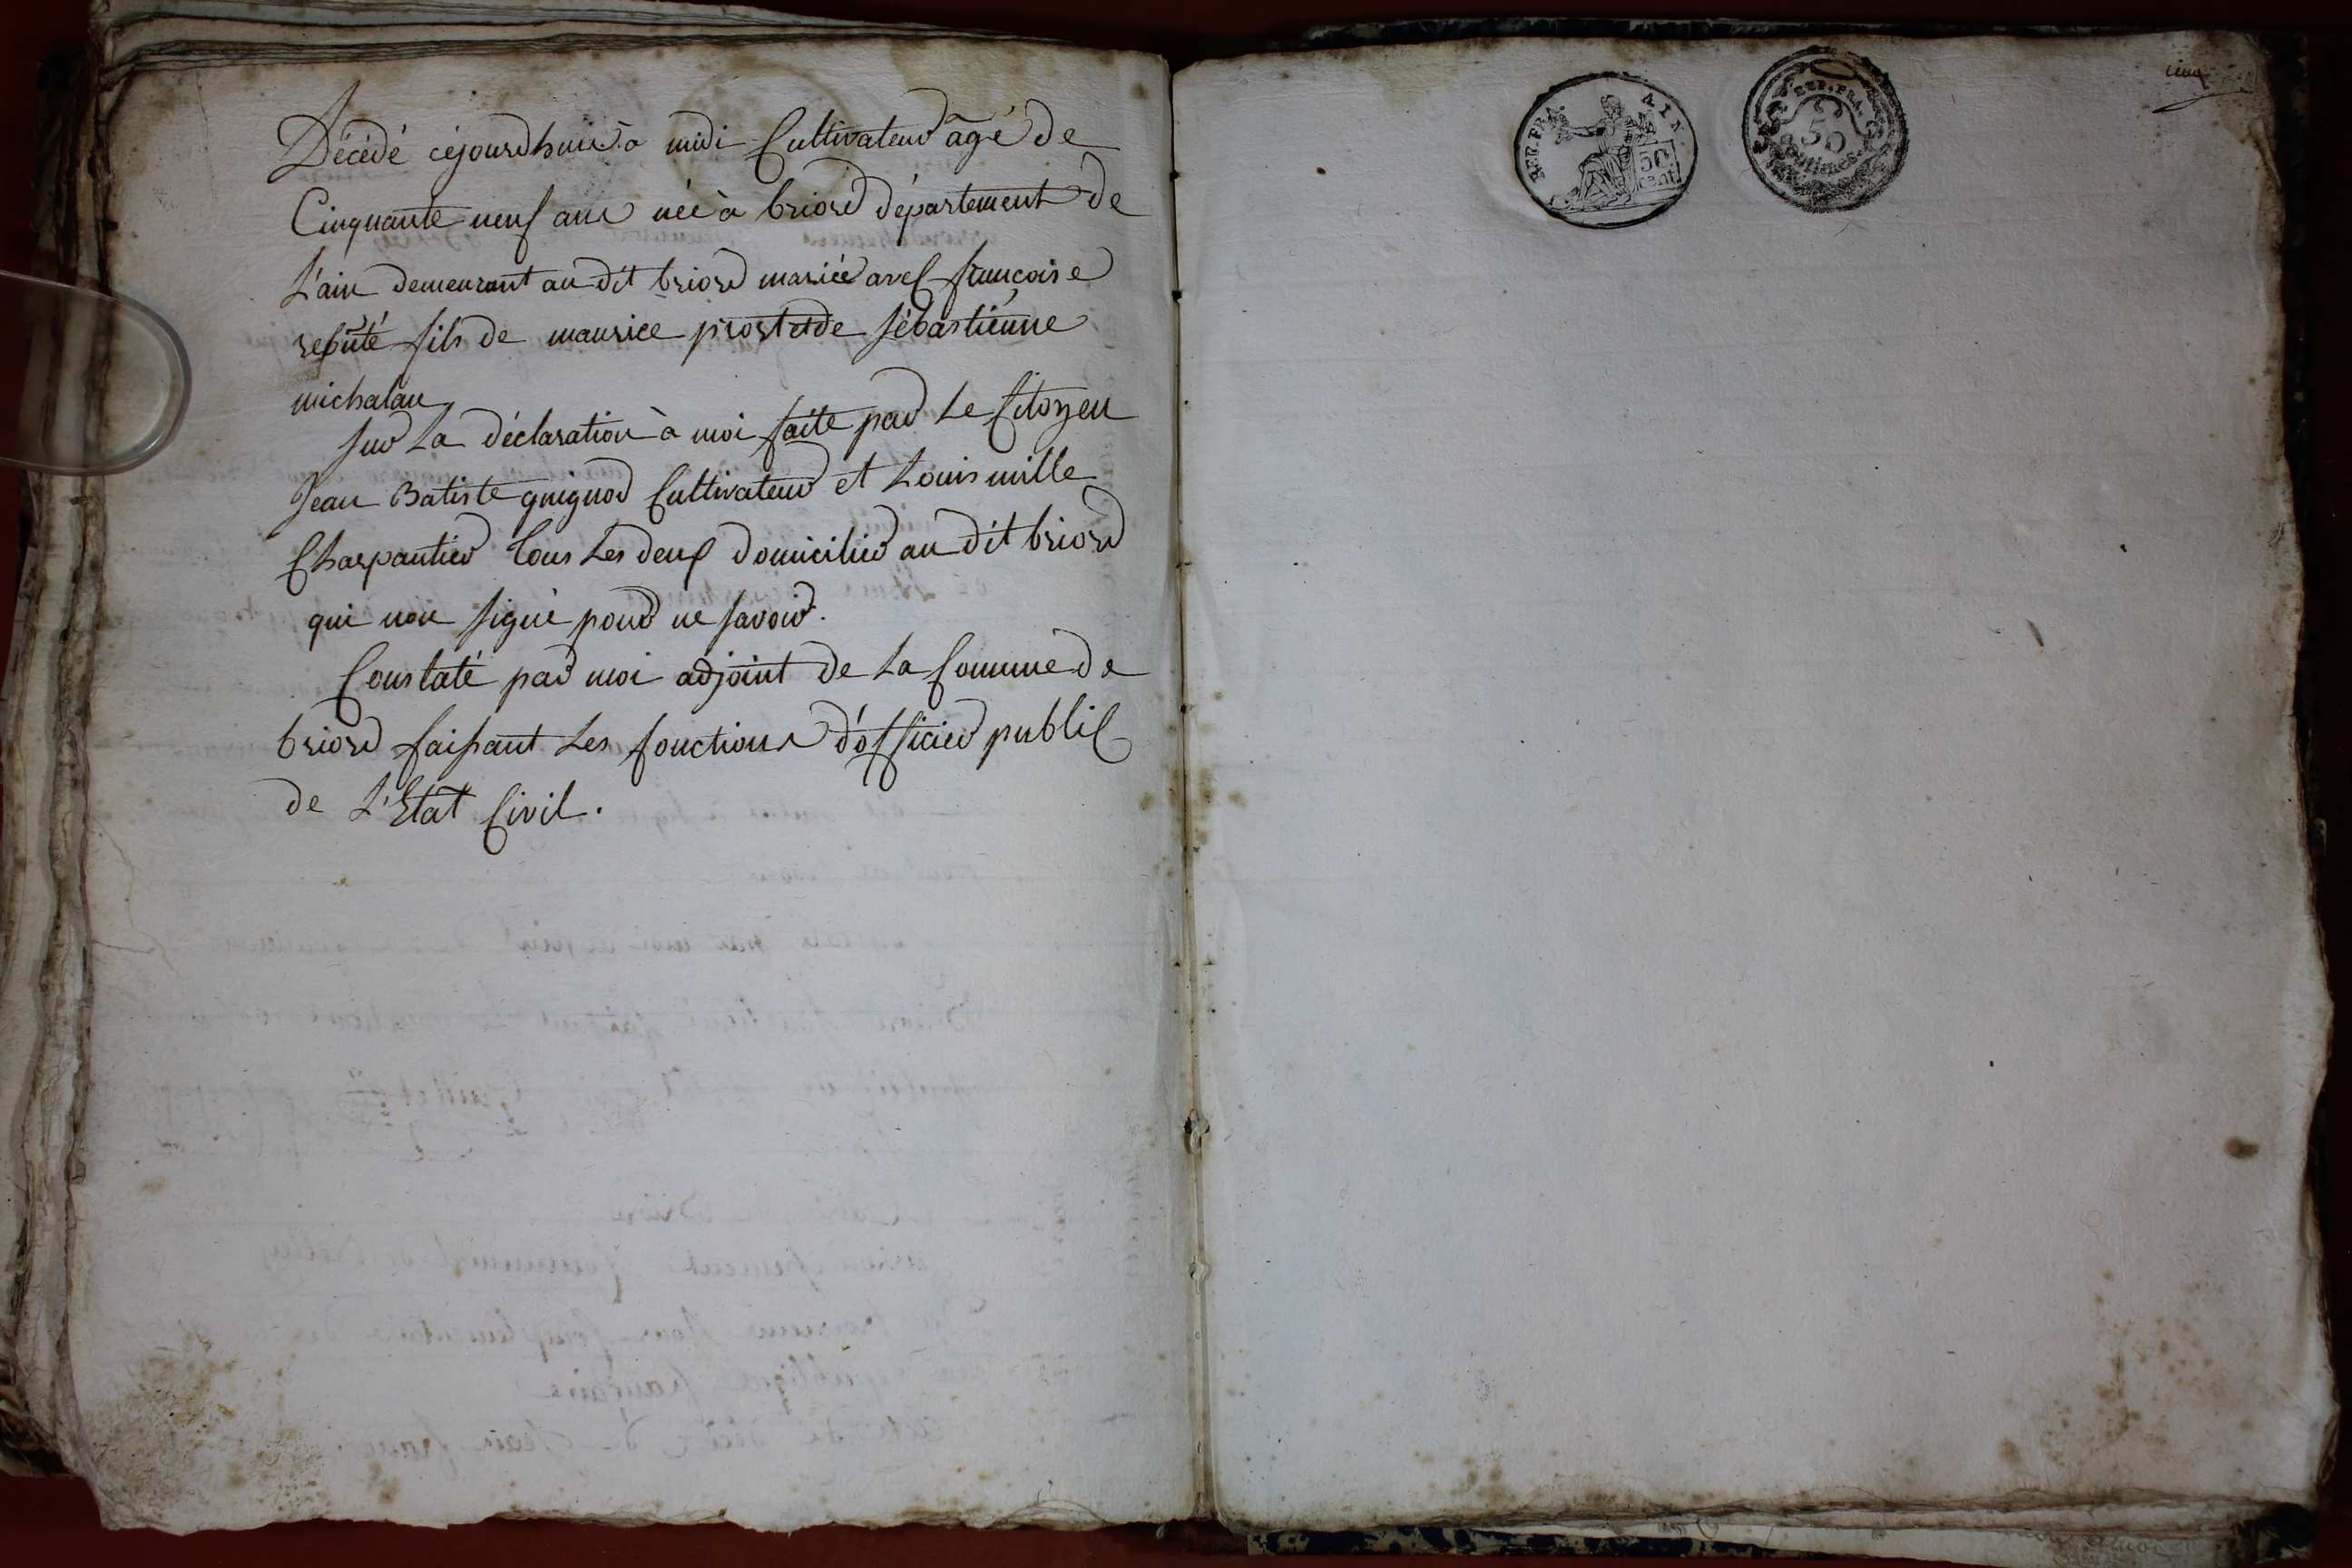 Décédé cejourdhuis a midi Cultivateur âgé de
Cinquante neuf ans née à briord département de
L'ain demeurant au dit briord mariée avec françoise
reputé fils de maurice prost et de sébastiénne
michalau
sur La déclaration à moi faite par Le Citoyen
Jean Batiste quignod Cultivateur et Louis mille
Charpantier tous Les deux domicilier au dit briord
qui non signé pour ne savoir.
Constaté par moi adjoint de La Commune de
briord faisant Les fonctions d'officier public
de L'Etat Civil.
REP. FRA. AIN
50 cent
REP. FRA.
50
centimes
cinq